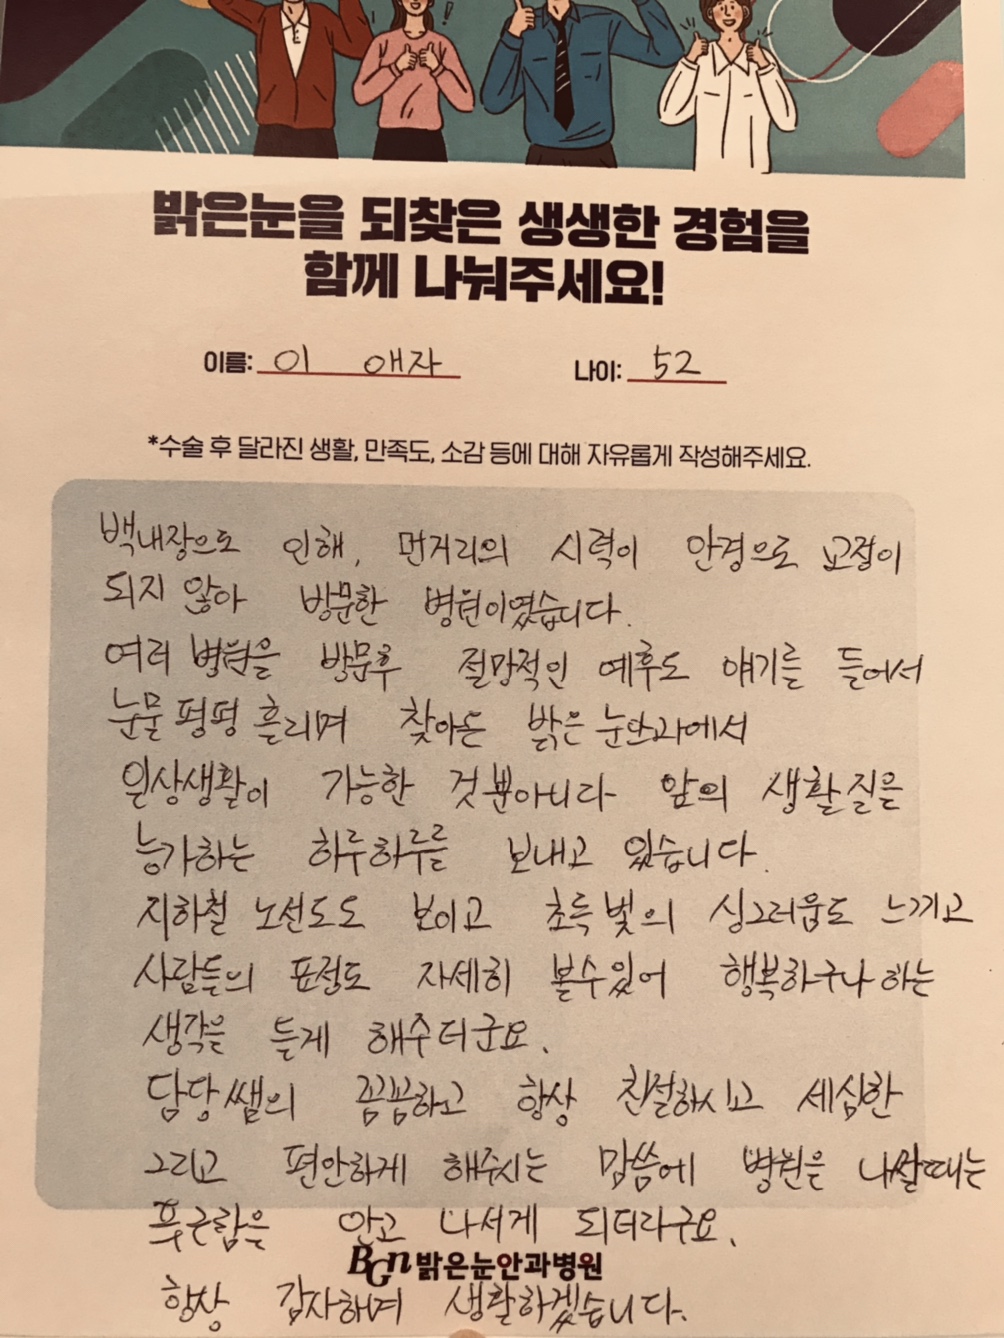 밝은눈을 되찾은 생생한 경험을
함께 나눠주세요!
이름: 이 애자 나이: 52
*수술 후 달라진 생활, 만족도, 소감 등에 대해 자유롭게 작성해주세요.
백내장으로 인해, 먼거리의 시력이 안경으로 교정이
되지 않아 방문한 병원이였습니다.
여러 병원을 방문후 절망적인 예후도 얘기를 들어서
눈물 펑펑 흘리며 찾아온 밝은 눈안과에서
일상생활이 가능한 것뿐아니라 앞의 생활질을
능가하는 하루하루를 보내고 있습니다.
지하철 노선도도 보이고 초록 빛의 싱그러움도 느끼고
사람들의 표정도 자세히 볼수있어 행복하구나 하는
생각을 들게 해주더군요.
담당쌤의 꼼꼼하고 항상 친절하시고 세심한
그리고 편안하게 해주시는 맘씀에 병원을 나설때는
푸근함을 안고 나서게 되더라구요.
BGn밝은눈안과병원
항상 감사하며 생활하겠습니다.